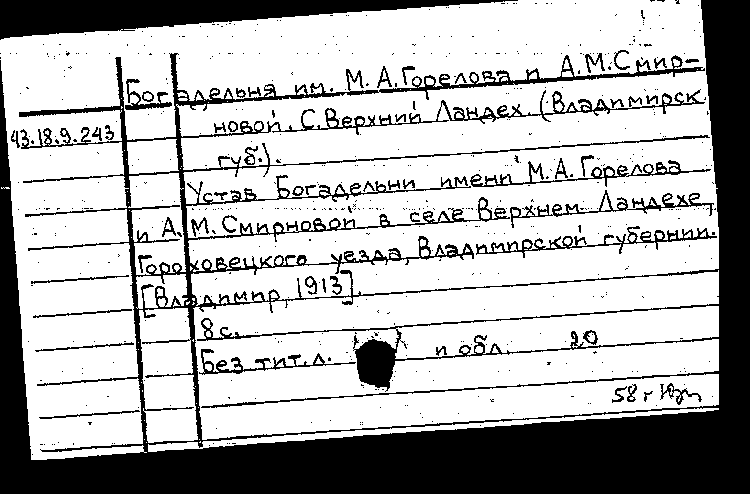 Богадельня им. М.А.Горелова и А.М.Смир-
43.18.9.243 новой. С.Верхний Ландех. (Владимирск
губ.).
Устав Богадельни имени М.А.Горелова
и А.М.Смирновой в селе Верхнем Ландехе,
Гороховецкого уезда, Владимирской губернии.
[Владимир, 1913].
8с.
Без тит.л. и обл. 20
58г